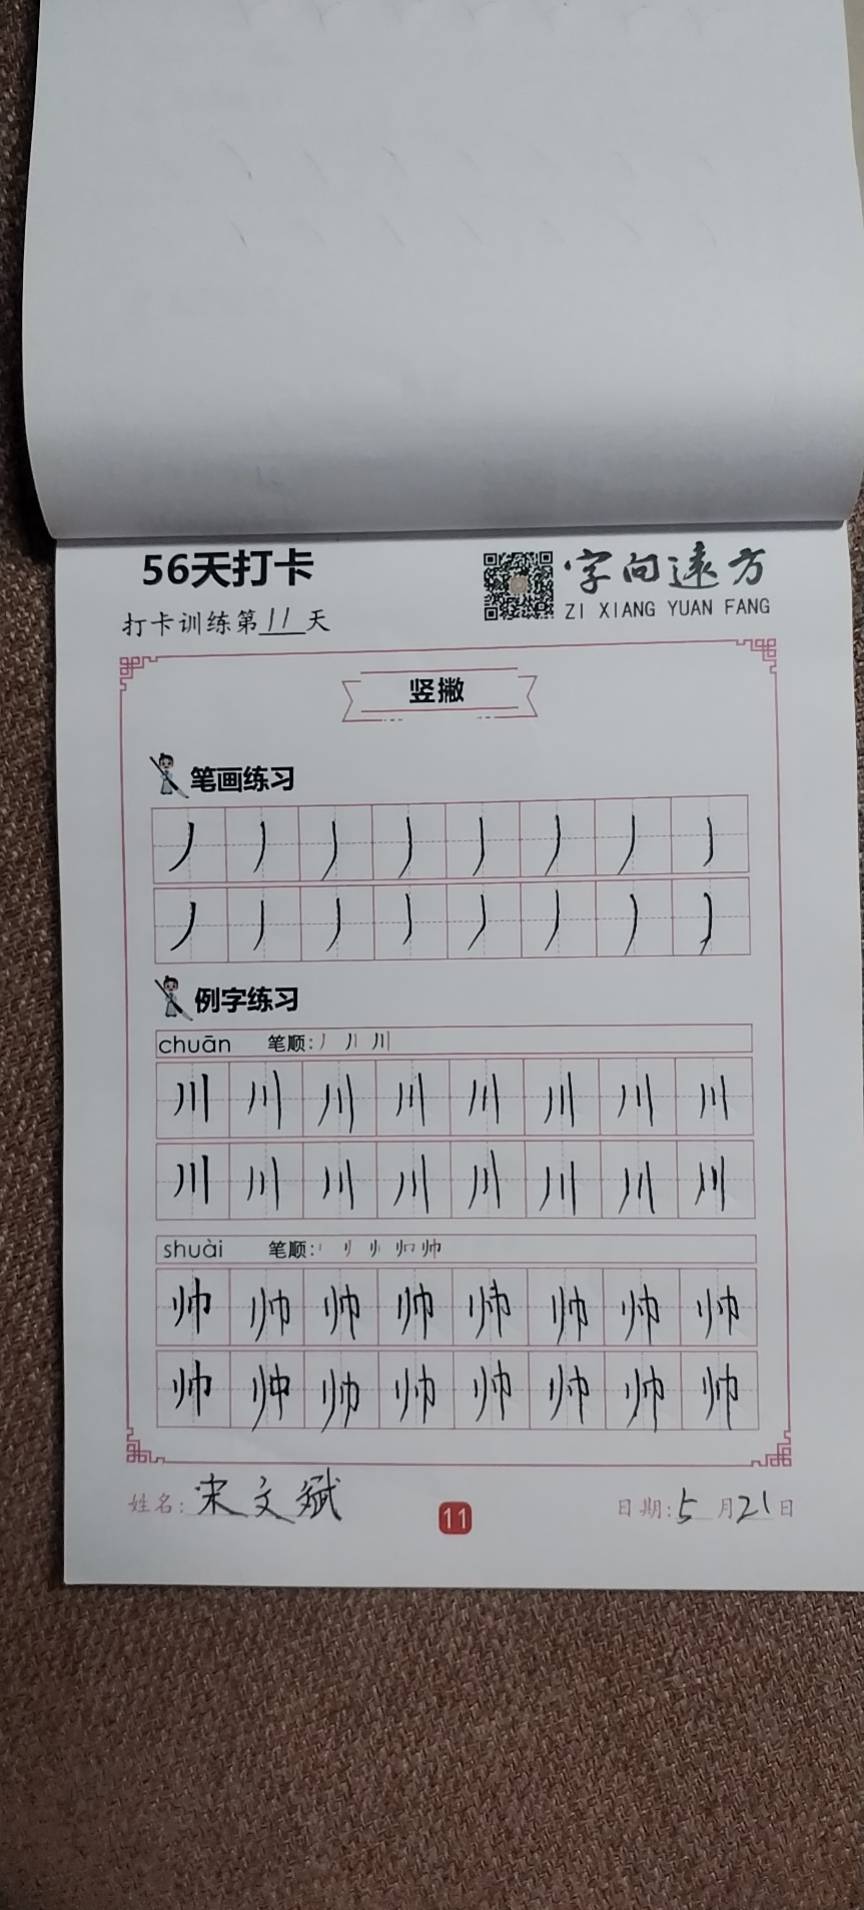 56天打卡
字向遠方
ZI XIANG YUAN FANG
打卡训练第11天
竖撇
笔画练习
丿丿丿丿丿丿丿丿
丿丿丿丿丿丿丿丿
例字练习
chuān 笔顺:丿 丿丨 川
川川川川川川川川
川川川川川川川川
shuài 笔顺:
帅帅帅帅帅帅帅帅
帅帅帅帅帅帅帅帅
姓名:宋文斌
11
日期:5月21日